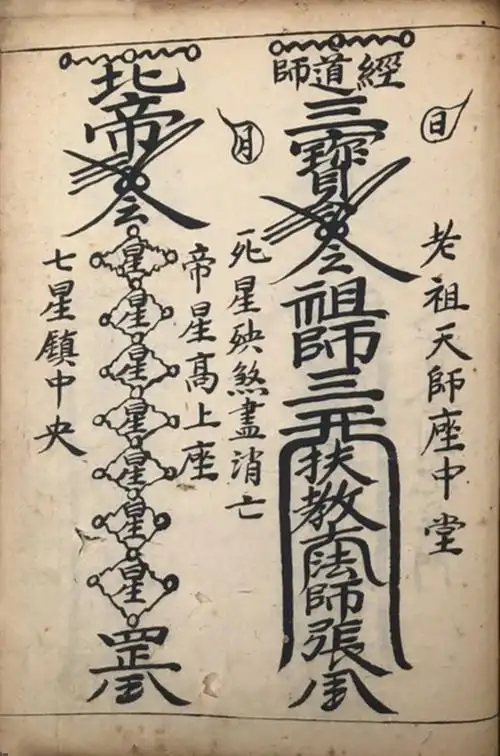 日
老祖天師座中堂
師道經
三寶勅令祖師三天扶教大法師張
月
死星殃煞盡消亡
帝星高上座
北帝勅令星星星星星星星罡
七星鎮中央